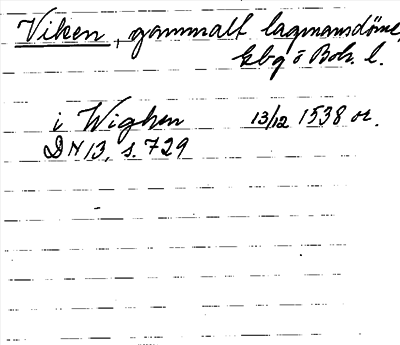 Viken, gammalt lagmansdöme,
kbg i Boh. l.
i Wighen 13/12 1538 or.
DN 13, s. 729